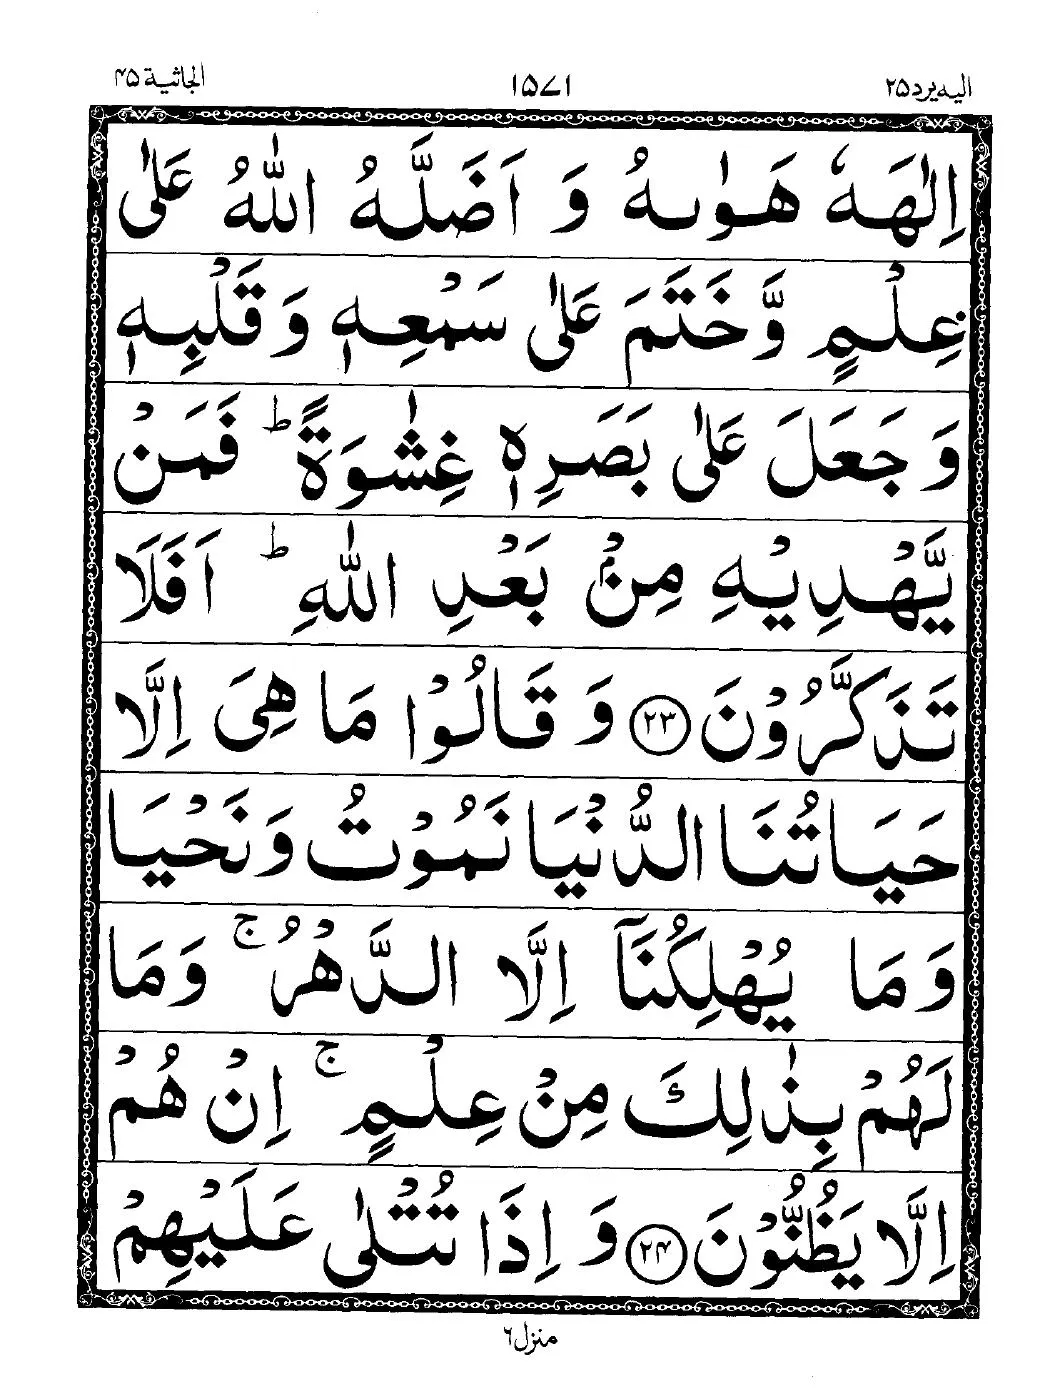 الیه یرد ۲۵ ۱۵۷۱ الجاثیة ۴۵
اِلٰهَهٗ هَوٰىهُ وَ اَضَلَّهُ اللّٰهُ عَلٰى
عِلْمٍ وَّ خَتَمَ عَلٰى سَمْعِهٖ وَ قَلْبِهٖ
وَ جَعَلَ عَلٰى بَصَرِهٖ غِشٰوَةً ؕ فَمَنْ
یَّهْدِیْهِ مِنْۢ بَعْدِ اللّٰهِ ؕ اَفَلَا
تَذَكَّرُوْنَ ﴿۲۳﴾ وَ قَالُوْا مَا هِیَ اِلَّا
حَیَاتُنَا الدُّنْیَا نَمُوْتُ وَ نَحْیَا
وَ مَا یُهْلِكُنَاۤ اِلَّا الدَّهْرُ ۚ وَ مَا
لَهُمْ بِذٰلِكَ مِنْ عِلْمٍ ۚ اِنْ هُمْ
اِلَّا یَظُنُّوْنَ ﴿۲۴﴾ وَ اِذَا تُتْلٰى عَلَیْهِمْ
منزل ۶